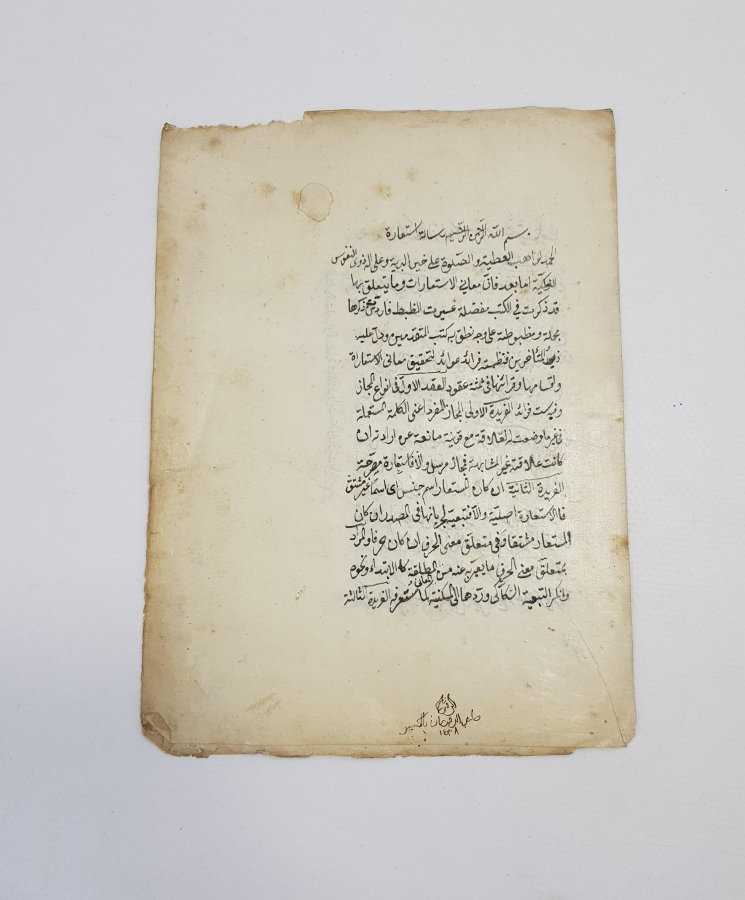 بسم الله الرحمن الرحيم رسالة استعارة
الحمد لواهب العطية والصلوة على خير البرية وعلى اله ذوى النفوس
الزكية اما بعد فان معانى الاستعارات وما يتعلق بها
قد ذكرت فى الكتب مفصلة عسيرت الضبط فاردت ذكرها
مجملة ومضبوطة على وجه نطق به كتب المتقدمين ودل عليه
زبر المتأخرين فنظمت فرائد عوائد لتحقيق معانى الاستعارة
واقسامها وقرائنها فى ثلثة عقود العقد الاول فى انواع المجاز
وفيه ست فرائد الفريدة الاولى المجاز المفرد اعنى الكلمة المستعملة
فى غير ما وضعت له لعلاقة مع قرينة مانعة عن ارادته ان
كانت علاقته غير المشابهة فمجاز مرسل والا فاستعارة مصرحة
الفريدة الثانية ان كان المستعار اسم جنس اى اسما غير مشتق
فالاستعارة اصلية والا فتبعية لجريانها فى المصدر ان كان
المستعار مشتقا وفى متعلق معنى الحرف ان كان حرفا والمراد
بمتعلق معنى الحرف ما يعبر به عنه من المعانى المطلقة كالابتداء ونحوه
وانكر التبعية السكاكى وردها الى المكنية كما ستعرفه الفريدة الثالثة
١٤٣٨